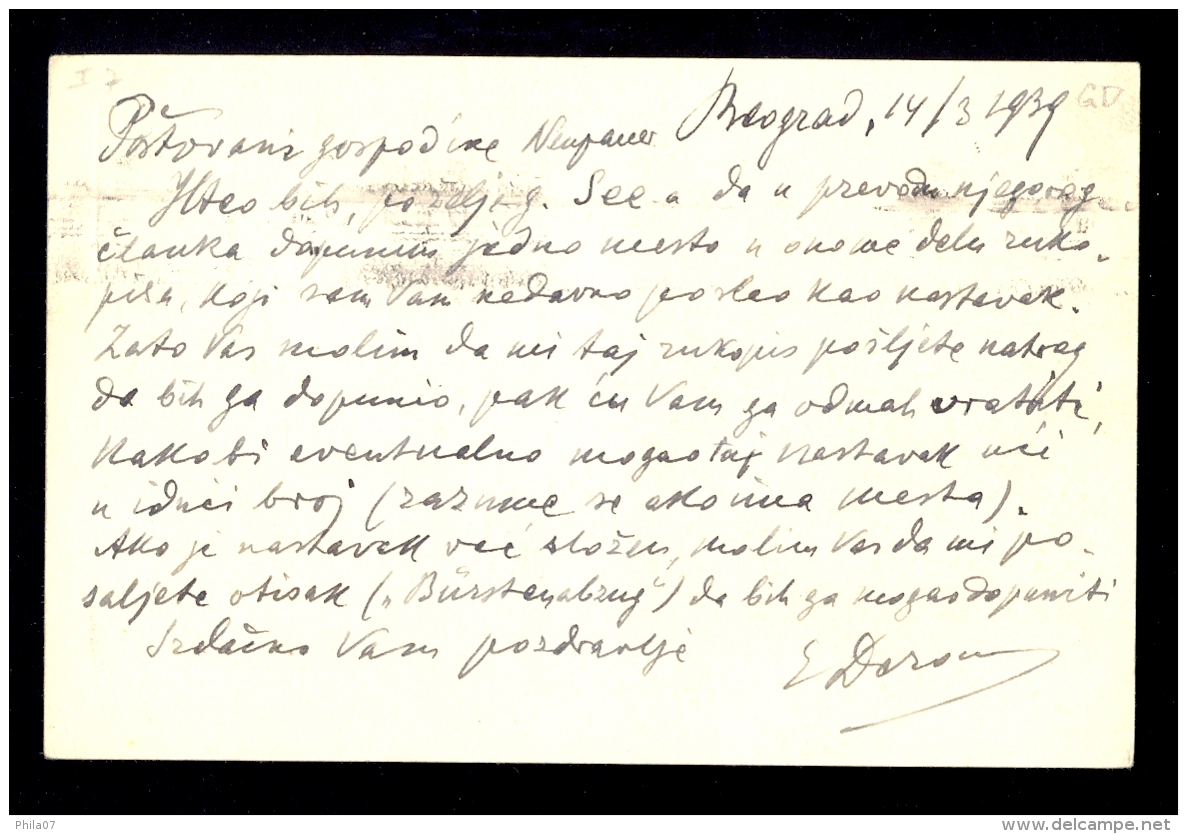 Beograd, 14/3 1939
Poštovani gospodine
Hteo bih, po želji g. See-a da u prevodu njegovog
članka dopunim jedno mesto u onome delu ruko-
pisa, koji sam Vam nedavno poslao kao nastavak.
Zato Vas molim da mi taj rukopis pošljete natrag
da bih ga dopunio, pak ću Vam ga odmah vratiti,
kako bi eventualno mogao taj nastavak ući
u idući broj (razume se ako ima mesta).
Ako je nastavak već složen, molim Vas da mi po-
šaljete otisak („Bürstenabzug") da bih ga mogao dopuniti
Srdačno Vam pozdravlje
Phila07
delcampe.net